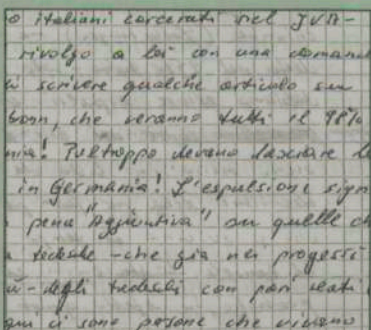 o italiani carcerati nel JVA-
rivolgo a lei con una domand
di scrivere qualche articolo su
Bonn, che veranno tutti il 98%
nia! Purtroppo devono lasciare l
in Germania! L'espulsione sign
pena "Aggiuntiva" su quelle ch
tedesche - che gia nei progessi
degli tedeschi con pari reati
qui ci sono persone che vivono